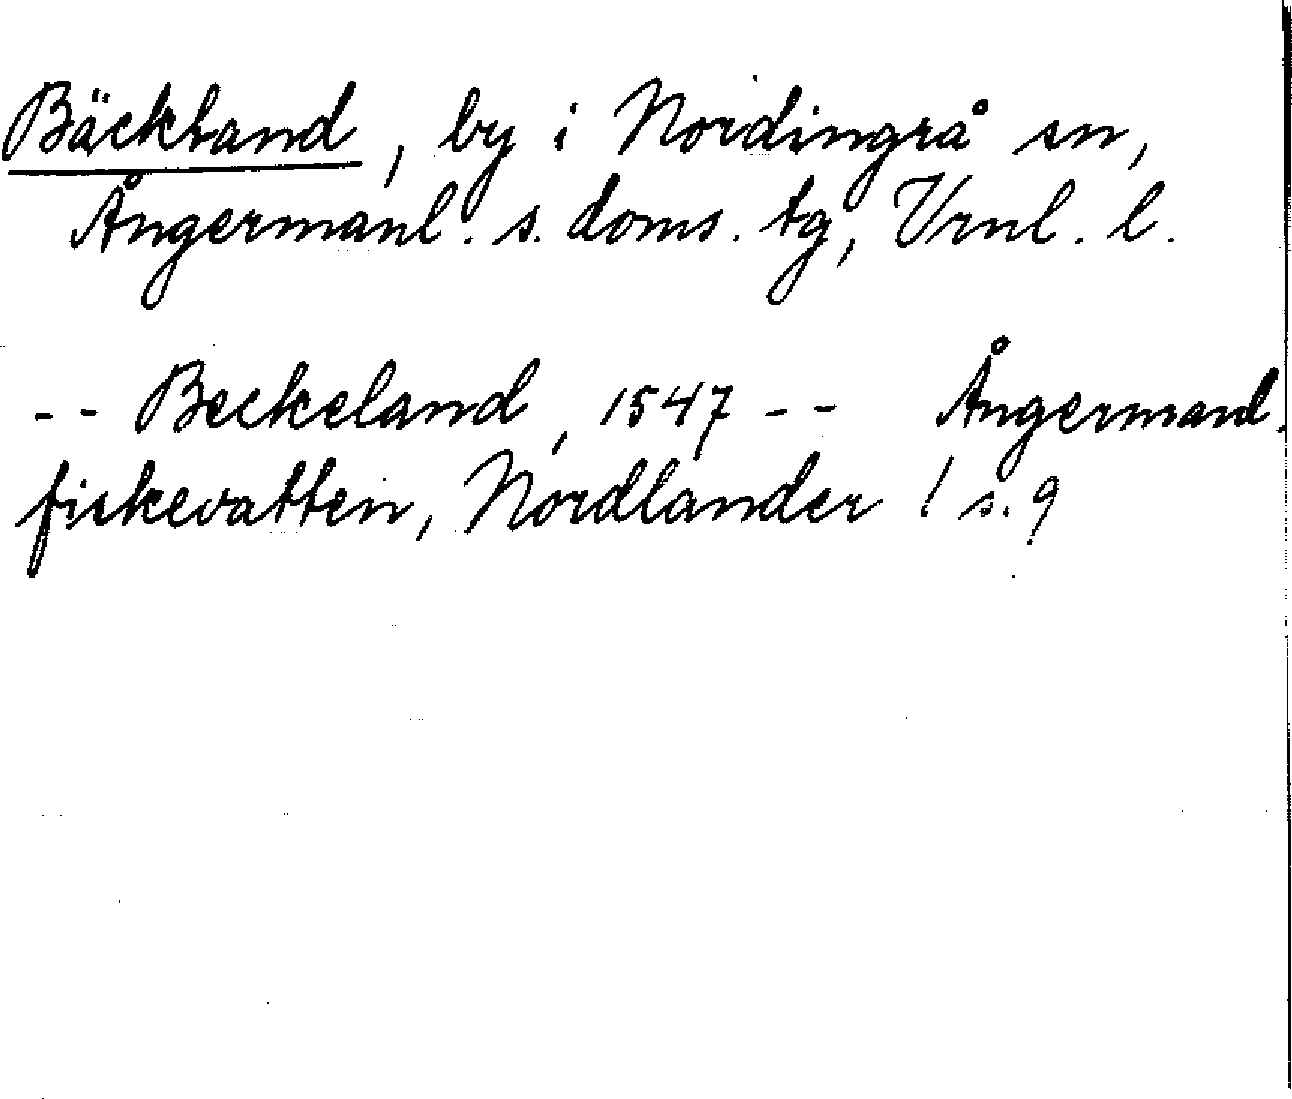 Bäckland, by i Nordingrå sn,
Ångermanl. s. doms. tg, Vrnl. l.
-- Beckeland, 1547 -- Ångermanl.
fiskevatten, Nordlander / s. 9